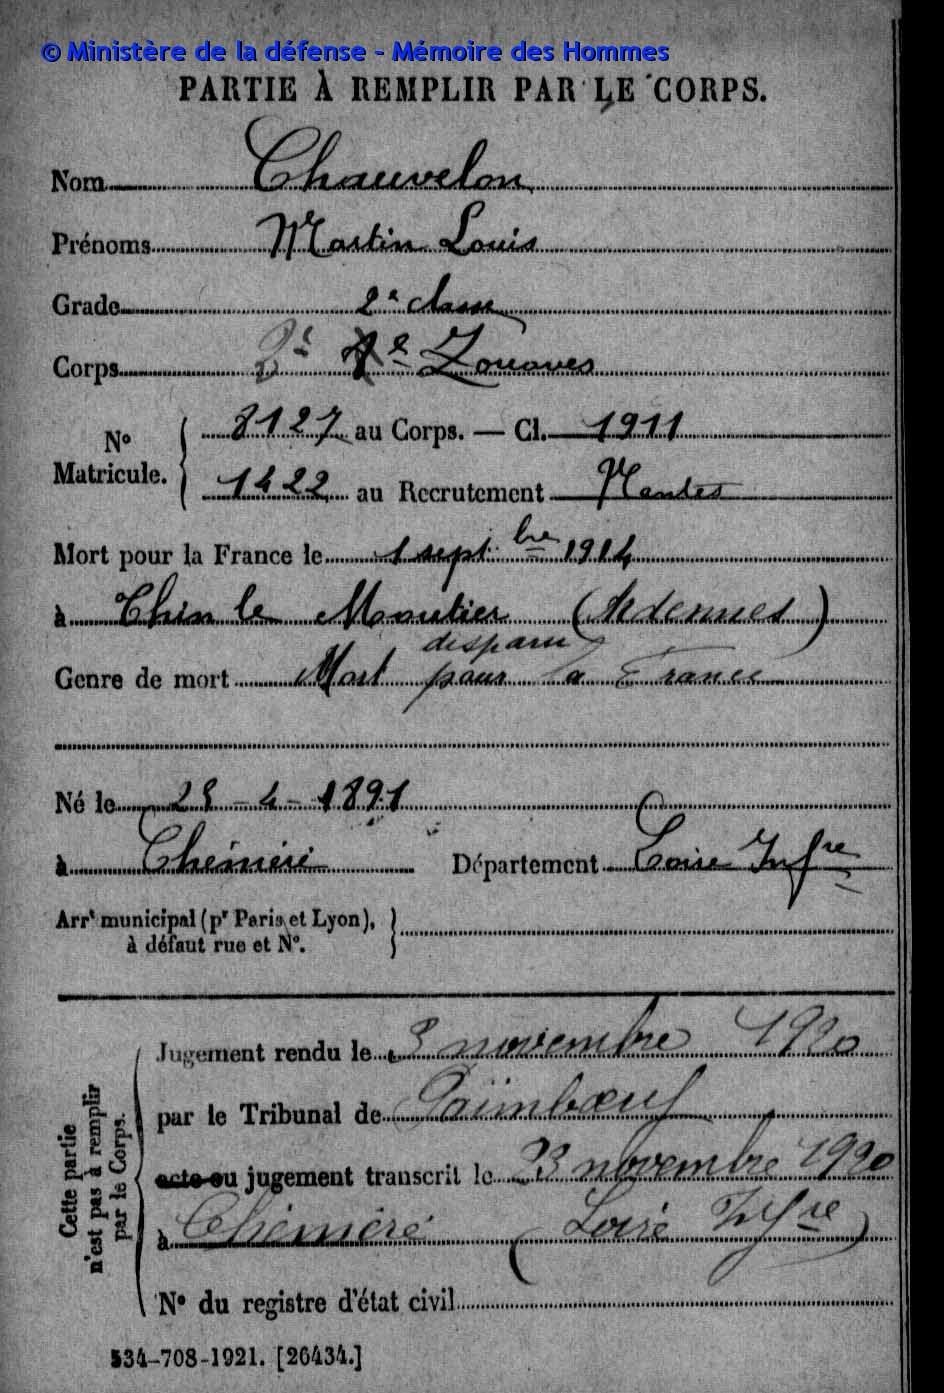 © Ministère de la défense - Mémoire des Hommes
PARTIE À REMPLIR PAR LE CORPS.
Nom Chauvelon
Prénoms Martin Louis
Grade 2e classe
Corps 2e 4e Zouaves
N° Matricule. 8127 au Corps. — Cl. 1911
1422 au Recrutement Nantes
Mort pour la France le 1 septbre 1914
à Thin le Moutier (Ardennes)
disparu
Genre de mort Mort pour la France
Né le 28-4-1891
à Chéméré Département Loire Infre
Arrt municipal (pr Paris et Lyon),
à défaut rue et N°.
Cette partie n'est pas à remplir par le Corps.
Jugement rendu le 3 novembre 1920
par le Tribunal de Paimbœuf
acte ou jugement transcrit le 23 novembre 1920
à Chéméré (Loire Infre)
N° du registre d'état civil
534-708-1921. [26434.]